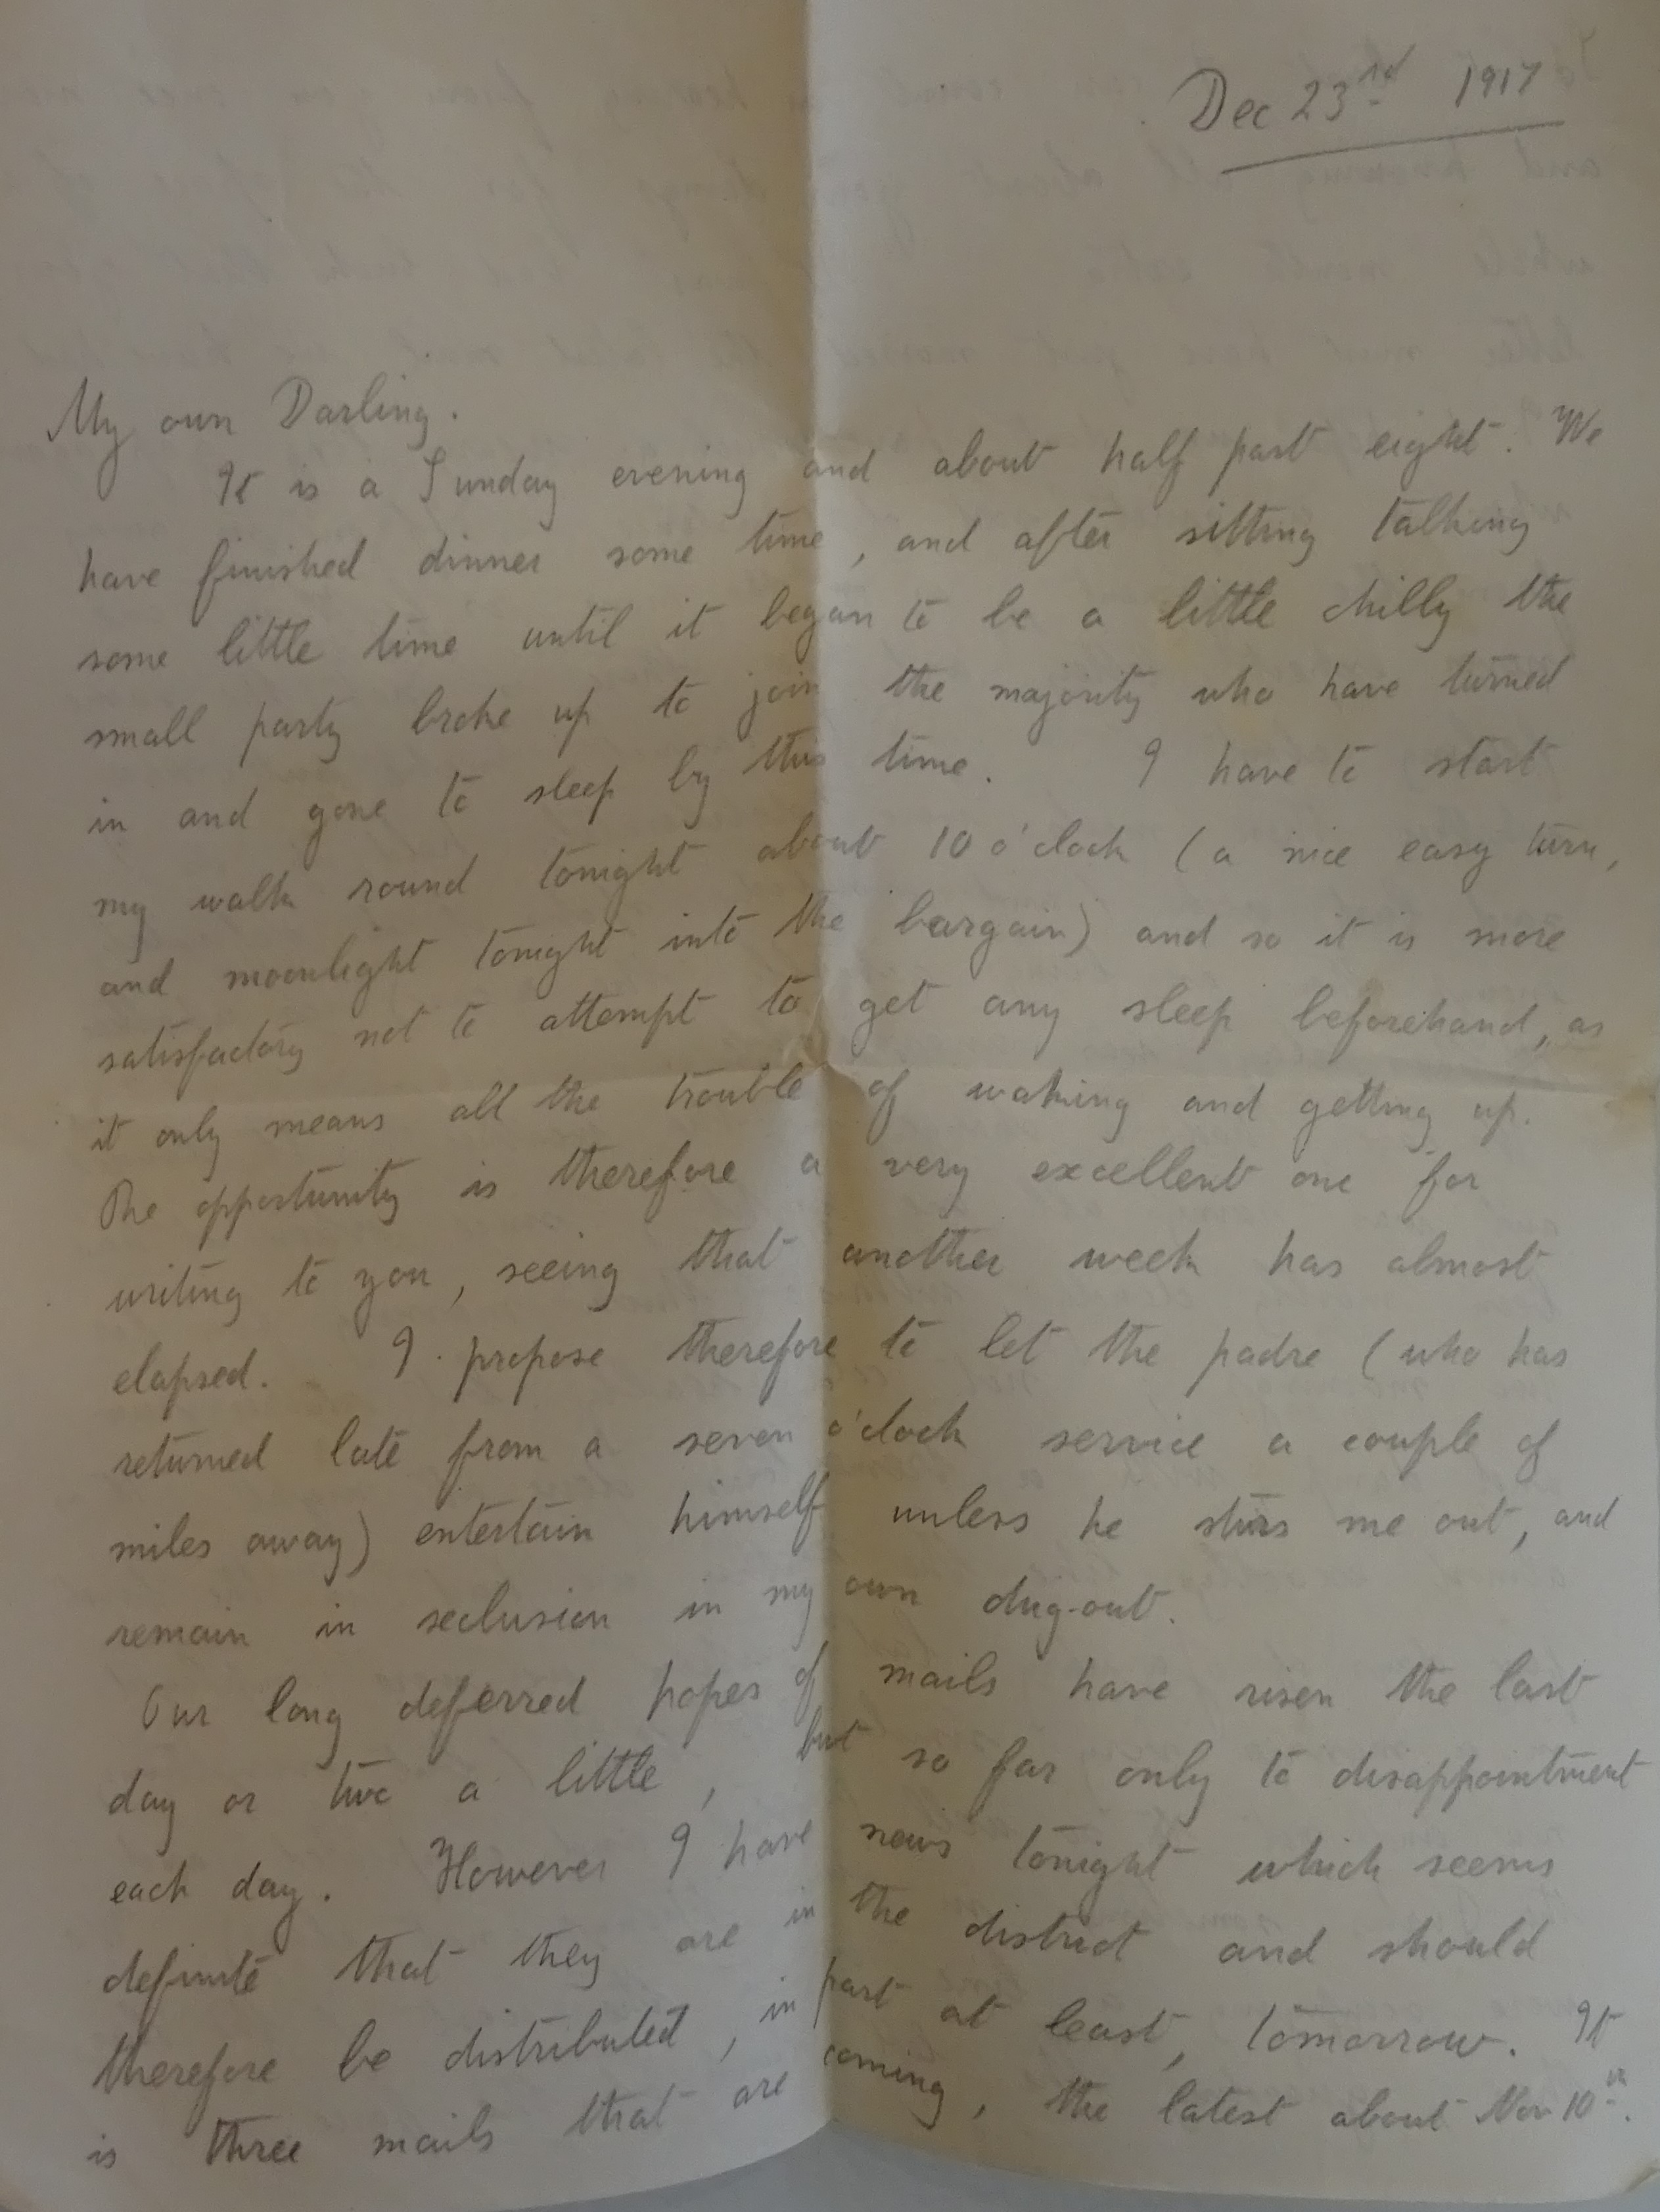 Dec 23rd 1917
My own Darling.
It is a Sunday evening and about half past eight. We
have finished dinner some time, and after sitting talking
some little time until it began to be a little chilly the
small party broke up to join the majority who have turned
in and gone to sleep by this time. I have to start
my walk round tonight about 10 o'clock (a nice easy turn,
and moonlight tonight into the bargain) and so it is more
satisfactory not to attempt to get any sleep beforehand, as
it only means all the trouble of waking and getting up.
The opportunity is therefore a very excellent one for
writing to you, seeing that another week has almost
elapsed. I propose therefore to let the padre (who has
returned late from a seven o'clock service a couple of
miles away) entertain himself unless he stirs me out, and
remain in seclusion in my own dug-out.
Our long deferred hopes of mails have risen the last
day or two a little, but so far only to disappointment
each day. However I have news tonight which seems
definite that they are in the district and should
therefore be distributed, in part at least, tomorrow. It
is three mails that are coming, the latest about Nov 10th.